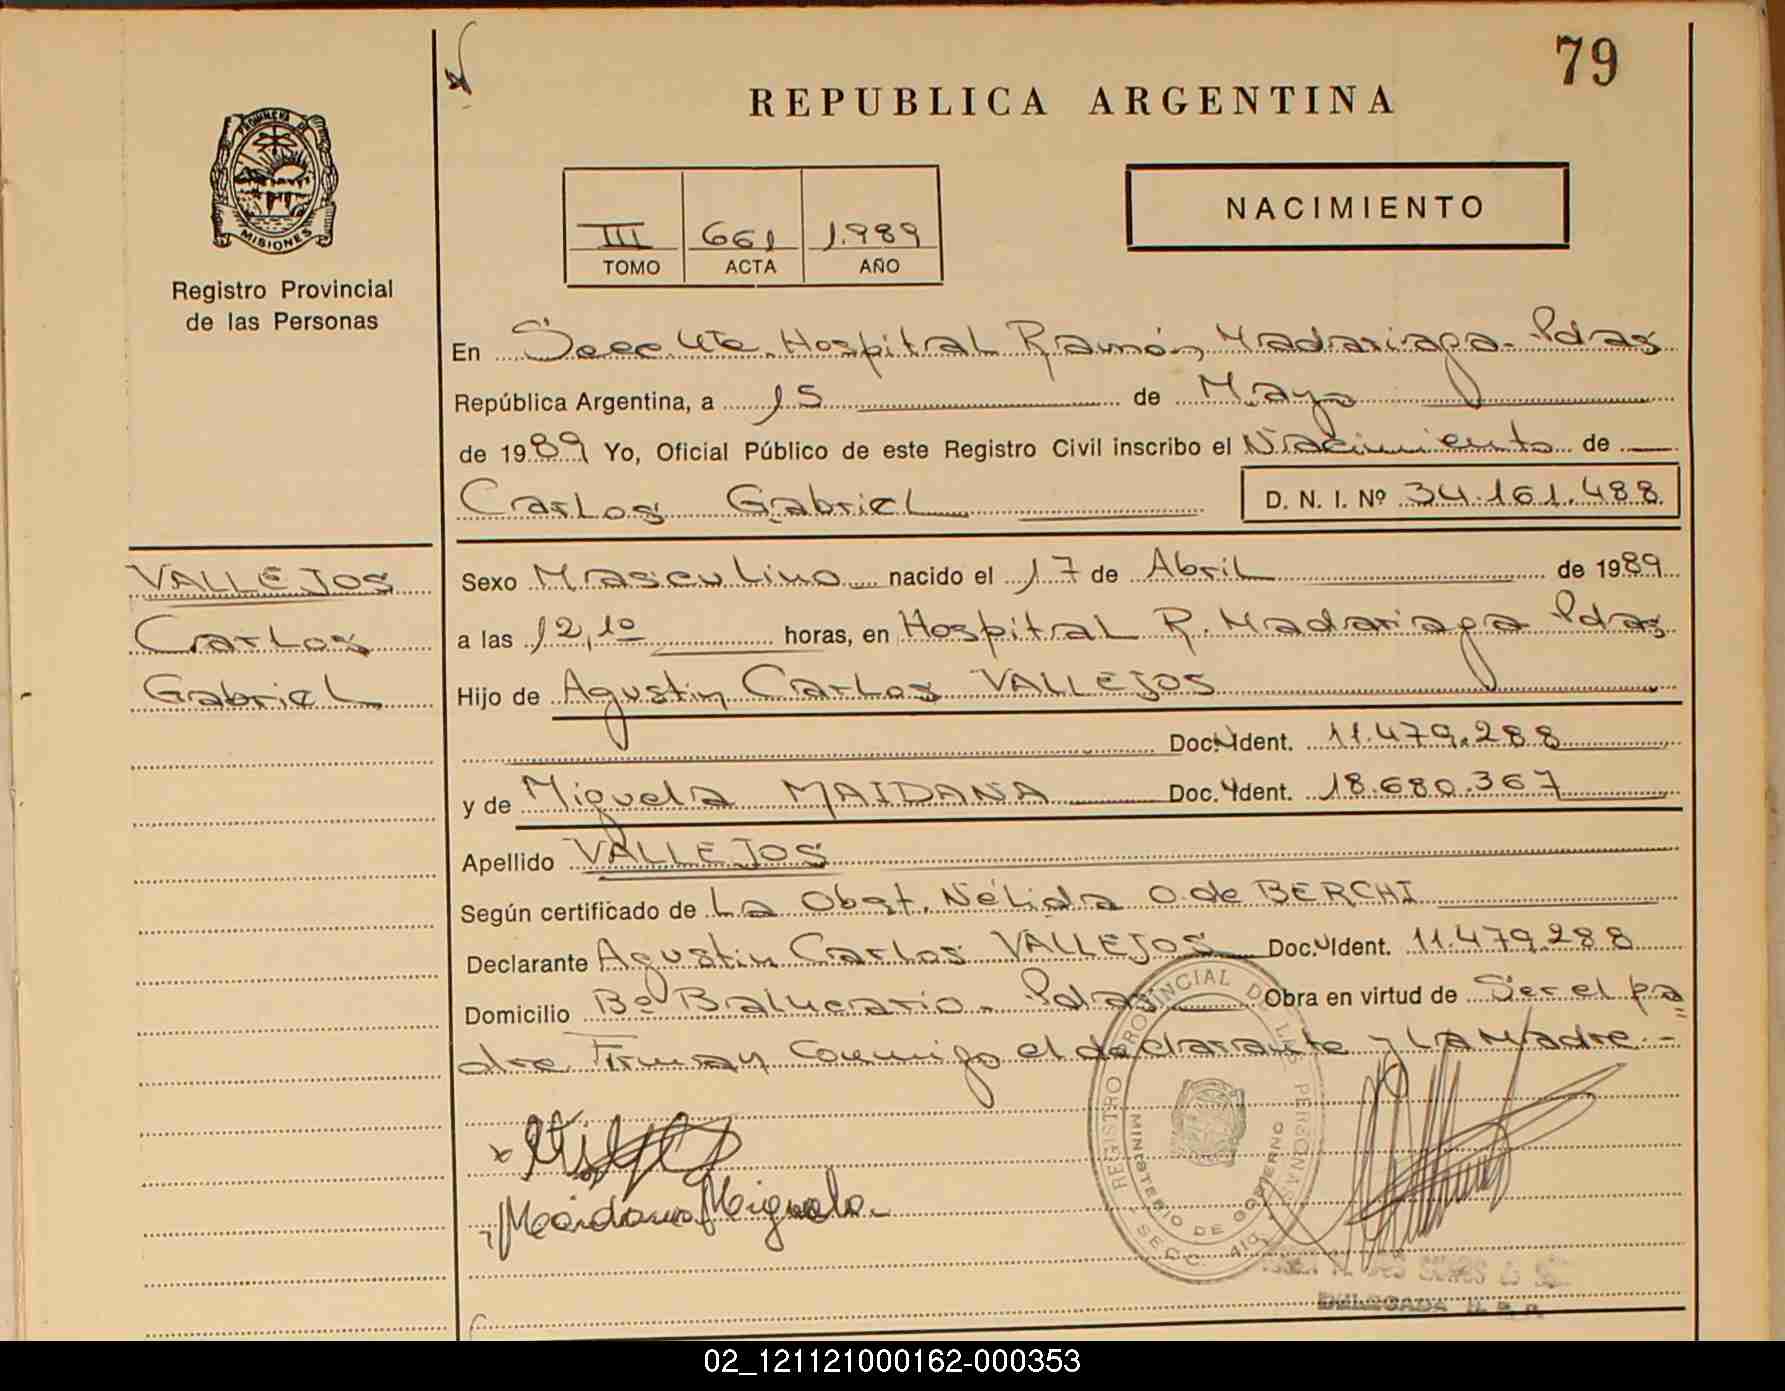 79
REPUBLICA ARGENTINA
PROVINCIA DE
MISIONES
Registro Provincial
de las Personas
III 661 1.989
TOMO ACTA AÑO
NACIMIENTO
En Secc. Hospital Ramón Madariaga - Pdas
República Argentina, a 15 de Mayo
de 1989 Yo, Oficial Público de este Registro Civil inscribo el Nacimiento de
Carlos Gabriel D. N. I. Nº 34.161.488
VALLEJOS
Carlos
Gabriel
Sexo Masculino nacido el 17 de Abril de 1989
a las 12,10 horas, en Hospital R. Madariaga Pdas
Hijo de Agustin Carlos VALLEJOS
Doc. Ident. 11.479.288
y de Miguela MAIDANA Doc. Ident. 18.680.367
Apellido VALLEJOS
Según certificado de La Obst. Nélida O. de BERCHI
Declarante Agustin Carlos VALLEJOS Doc. Ident. 11.479.288
Domicilio Bº Balneario - Pdas Obra en virtud de Ser el pa
dre Firman Conmigo el declarante y La Madre -
Maidana Miguela
REGISTRO PROVINCIAL DE LAS PERSONAS
MINISTERIO DE GOBIERNO
SECC.
DELEGADA
02_121121000162-000353